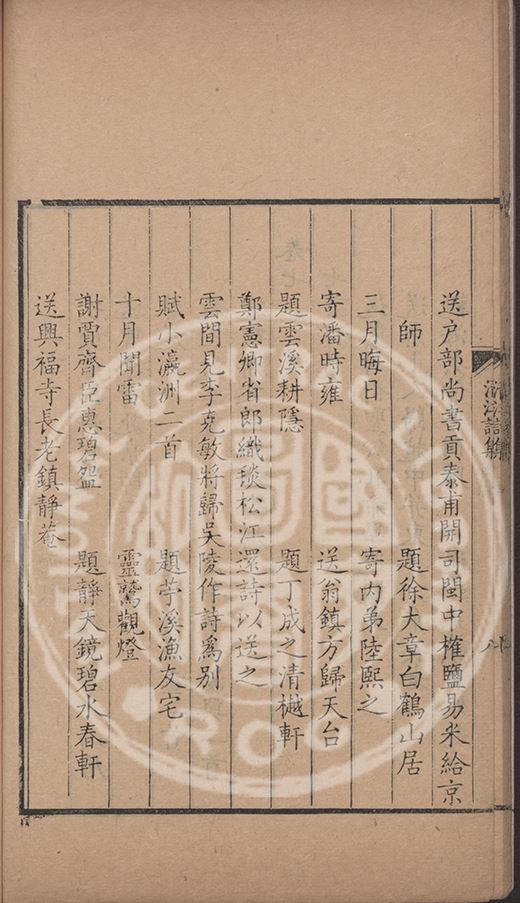 送户部尚書貢泰甫開司閩中榷鹽易米給京
師　題徐大章白鶴山居
三月晦日　寄内弟陸熙之
寄潘時雍　送翁鎮方歸天台
題雲溪耕隱　題丁成之清樾軒
鄭憲卿省郎織琰松江還詩以送之
雲間見李克敏將歸吳陵作詩爲别
賦小瀛洲二首　題苧溪漁友宅
十月聞雷　靈鷲觀燈
謝賈齊臣惠碧盌　題靜天鏡碧水春軒
送興福寺長老鎮靜菴